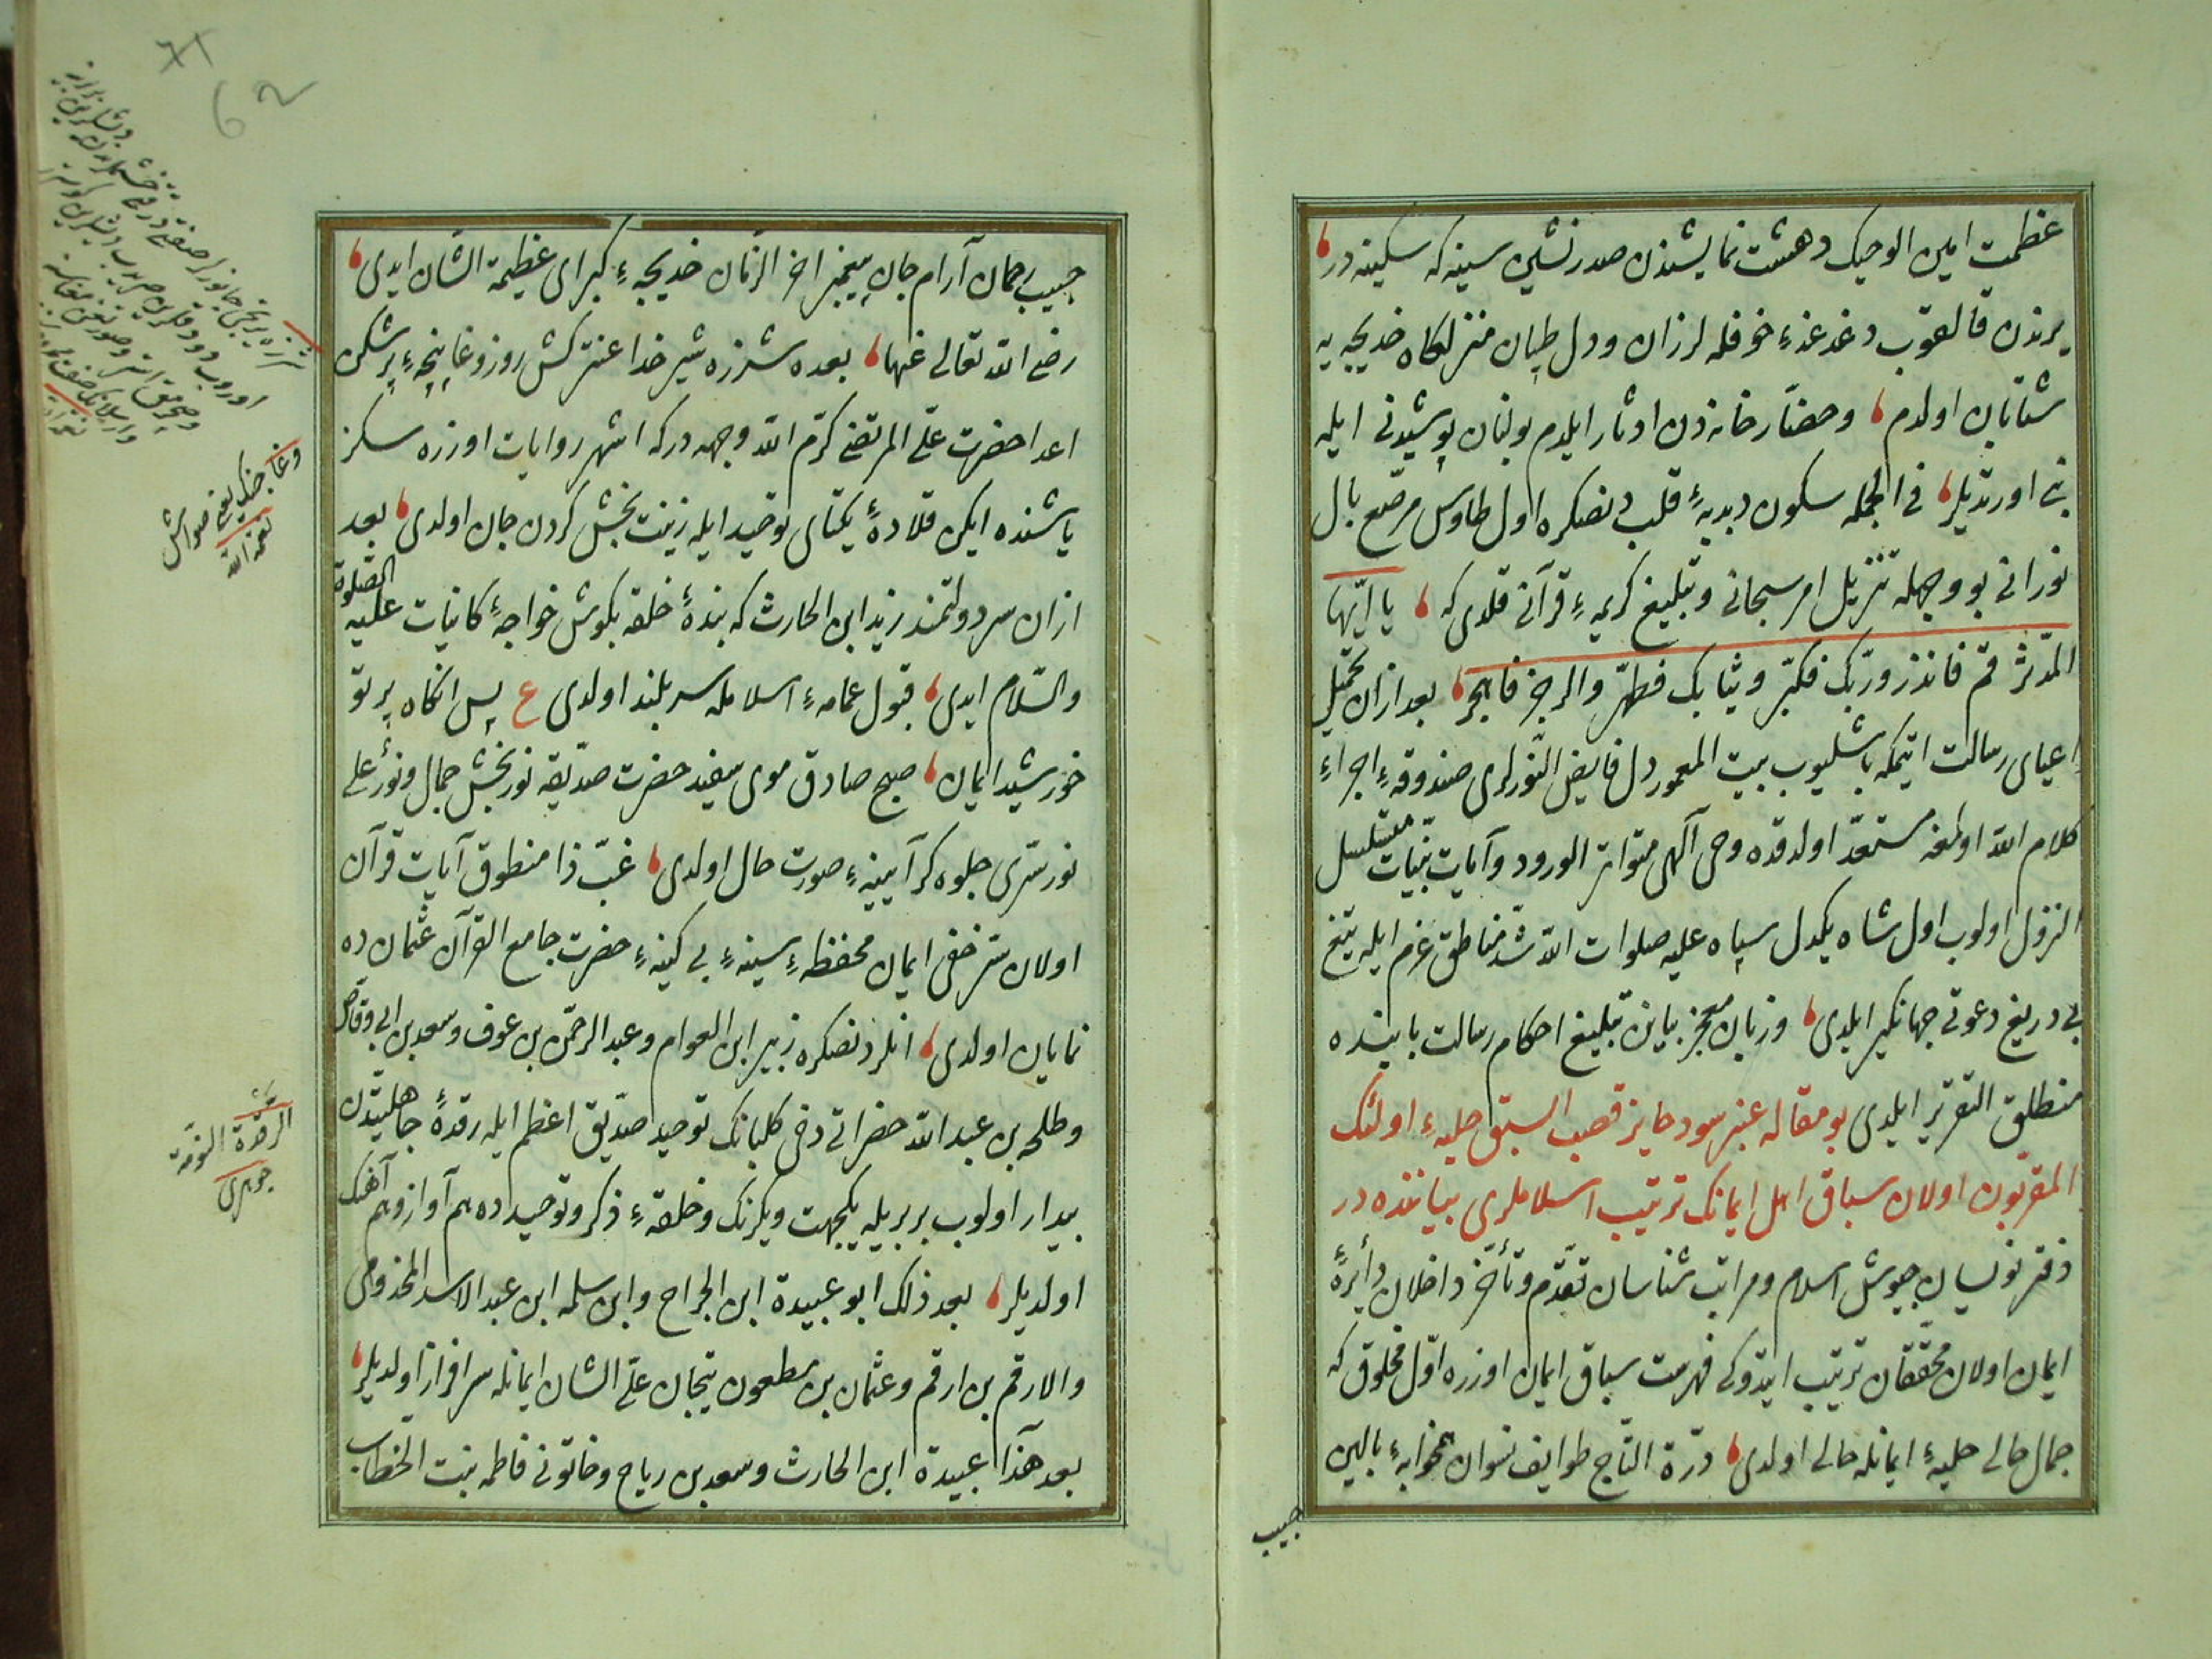 عظمت امین الوحیک دهشت نمایشندن صدرنشین سینه که سکینه در
یرندن قالقوب دغدغهٔ خوفله لرزان و دل طپان منزلکاه خدیجه یه
شتابان اولدم و حضار خانه دن ادثار ایلدم بولنان پوشیدنی ایله
بنی اورتدیلر فی الجمله سکون دبدبهٔ قلب دنصکره اول طاوس مرصع بال
نورانی بو وجهله تنزیل امر سبحانی و تبلیغ کریمهٔ قرآنی قلدی که یا ایّها
المدّثر قم فانذر وربّک فکبّر وثیابک فطهّر والرجز فاهجر بعد ازان تحمّل
اعیای رسالت ایتمکه باشلیوب بیت المعمور دل فایض النّورلری صندوقهٔ اجراء
کلام الله اولمغه مستعدّ اولدقده وحی آلهی متواتر الورود وآیات بیّنات متسلسل
النزول اولوب اول شاه یکدل سپاه علیه صلوات الله شدّ مناطق عزم ایله تیغ
بی دریغ دعوتی جهانکیر ایلدی وزبان معجز بیانن تبلیغ احکام رسالت بابنده
منطلق التقریر ایلدی بو مقاله عنبر سود حایز قصب السبق حلبهٔ اولئک
المقرّبون اولان سباق اهل ایمانک ترتیب اسلاملری بیاننده در
دفتر نویسان جیوش اسلام ومراتب شناسان تقدّم وتأخّر داخلان دأیرهٔ
ایمان اولان محقّقان ترتیب ایتدوکی فهرست سباق ایمان اوزره اوّل مخلوق که
جمال حالی حلیهٔ ایمانله حالی اولدی درّة التّاج طوایف نسوان همخوابهٔ بالین
حبیب
حبیب رحمان آرام جان پیغمبر اخر الزمان خدیجهٔ کبرای عظیمة الشان ایدی
رضی الله تعالی عنها بعده شرزه شیر خدا عنترکش روز وغا پنجهٔ پر شکن
اعدا حضرت علیّ المرتضی کرّم الله وجهه درکه اشهر روایات اوزره سکز
یاشنده ایکن قلادهٔ یکتای توحید ایله زینت بخش کردن جان اولدی بعد
ازان سر دولتمند زید ابن الحارث که بندهٔ حلقه بکوش خواجهٔ کاینات علیه الصّلوة
والسّلام ایدی قبول عمامهٔ اسلامله سربلند اولدی ع پس انکاه پرتو
خورشید ایمان صبح صادق موی سفید حضرت صدّیقه نوربخش جمال ونورٌ علی
نور سرّی جلوه کر آیینهٔ صورت حال اولدی غبّ ذا منطوق آیات قرآن
اولان سرّ خفی ایمان محفظهٔ سینهٔ بی کینهٔ حضرت جامع القرآن عثمان ده
نمایان اولدی انلردنصکره زبیر ابن العوام وعبد الرحمن بن عوف وسعد بن ابی وقاص
وطلحه بن عبد الله حضراتی دخی کلبانک توحید صدّیق اعظم ایله رقدهٔ جاهلیّتدن
بیدار اولوب بربریله یکجهت ویکرنک وحلقهٔ ذکر وتوحیده هم آواز وهم آهنک
اولدیلر بعد ذلک ابو عبیدة ابن الجراح وابن سلمه ابن عبد الاسد المخذومی
والارقم بن ارقم وعثمان بن مطعون تیجان علیّ الشان ایمانله سرافراز اولدیلر
بعد هذا عبیدة ابن الحارث وسعد بن ریاح وخاتونی فاطمه بنت الخطاب
وغا جنک
نعمة الله
الرقدة النومة
جوهری
62